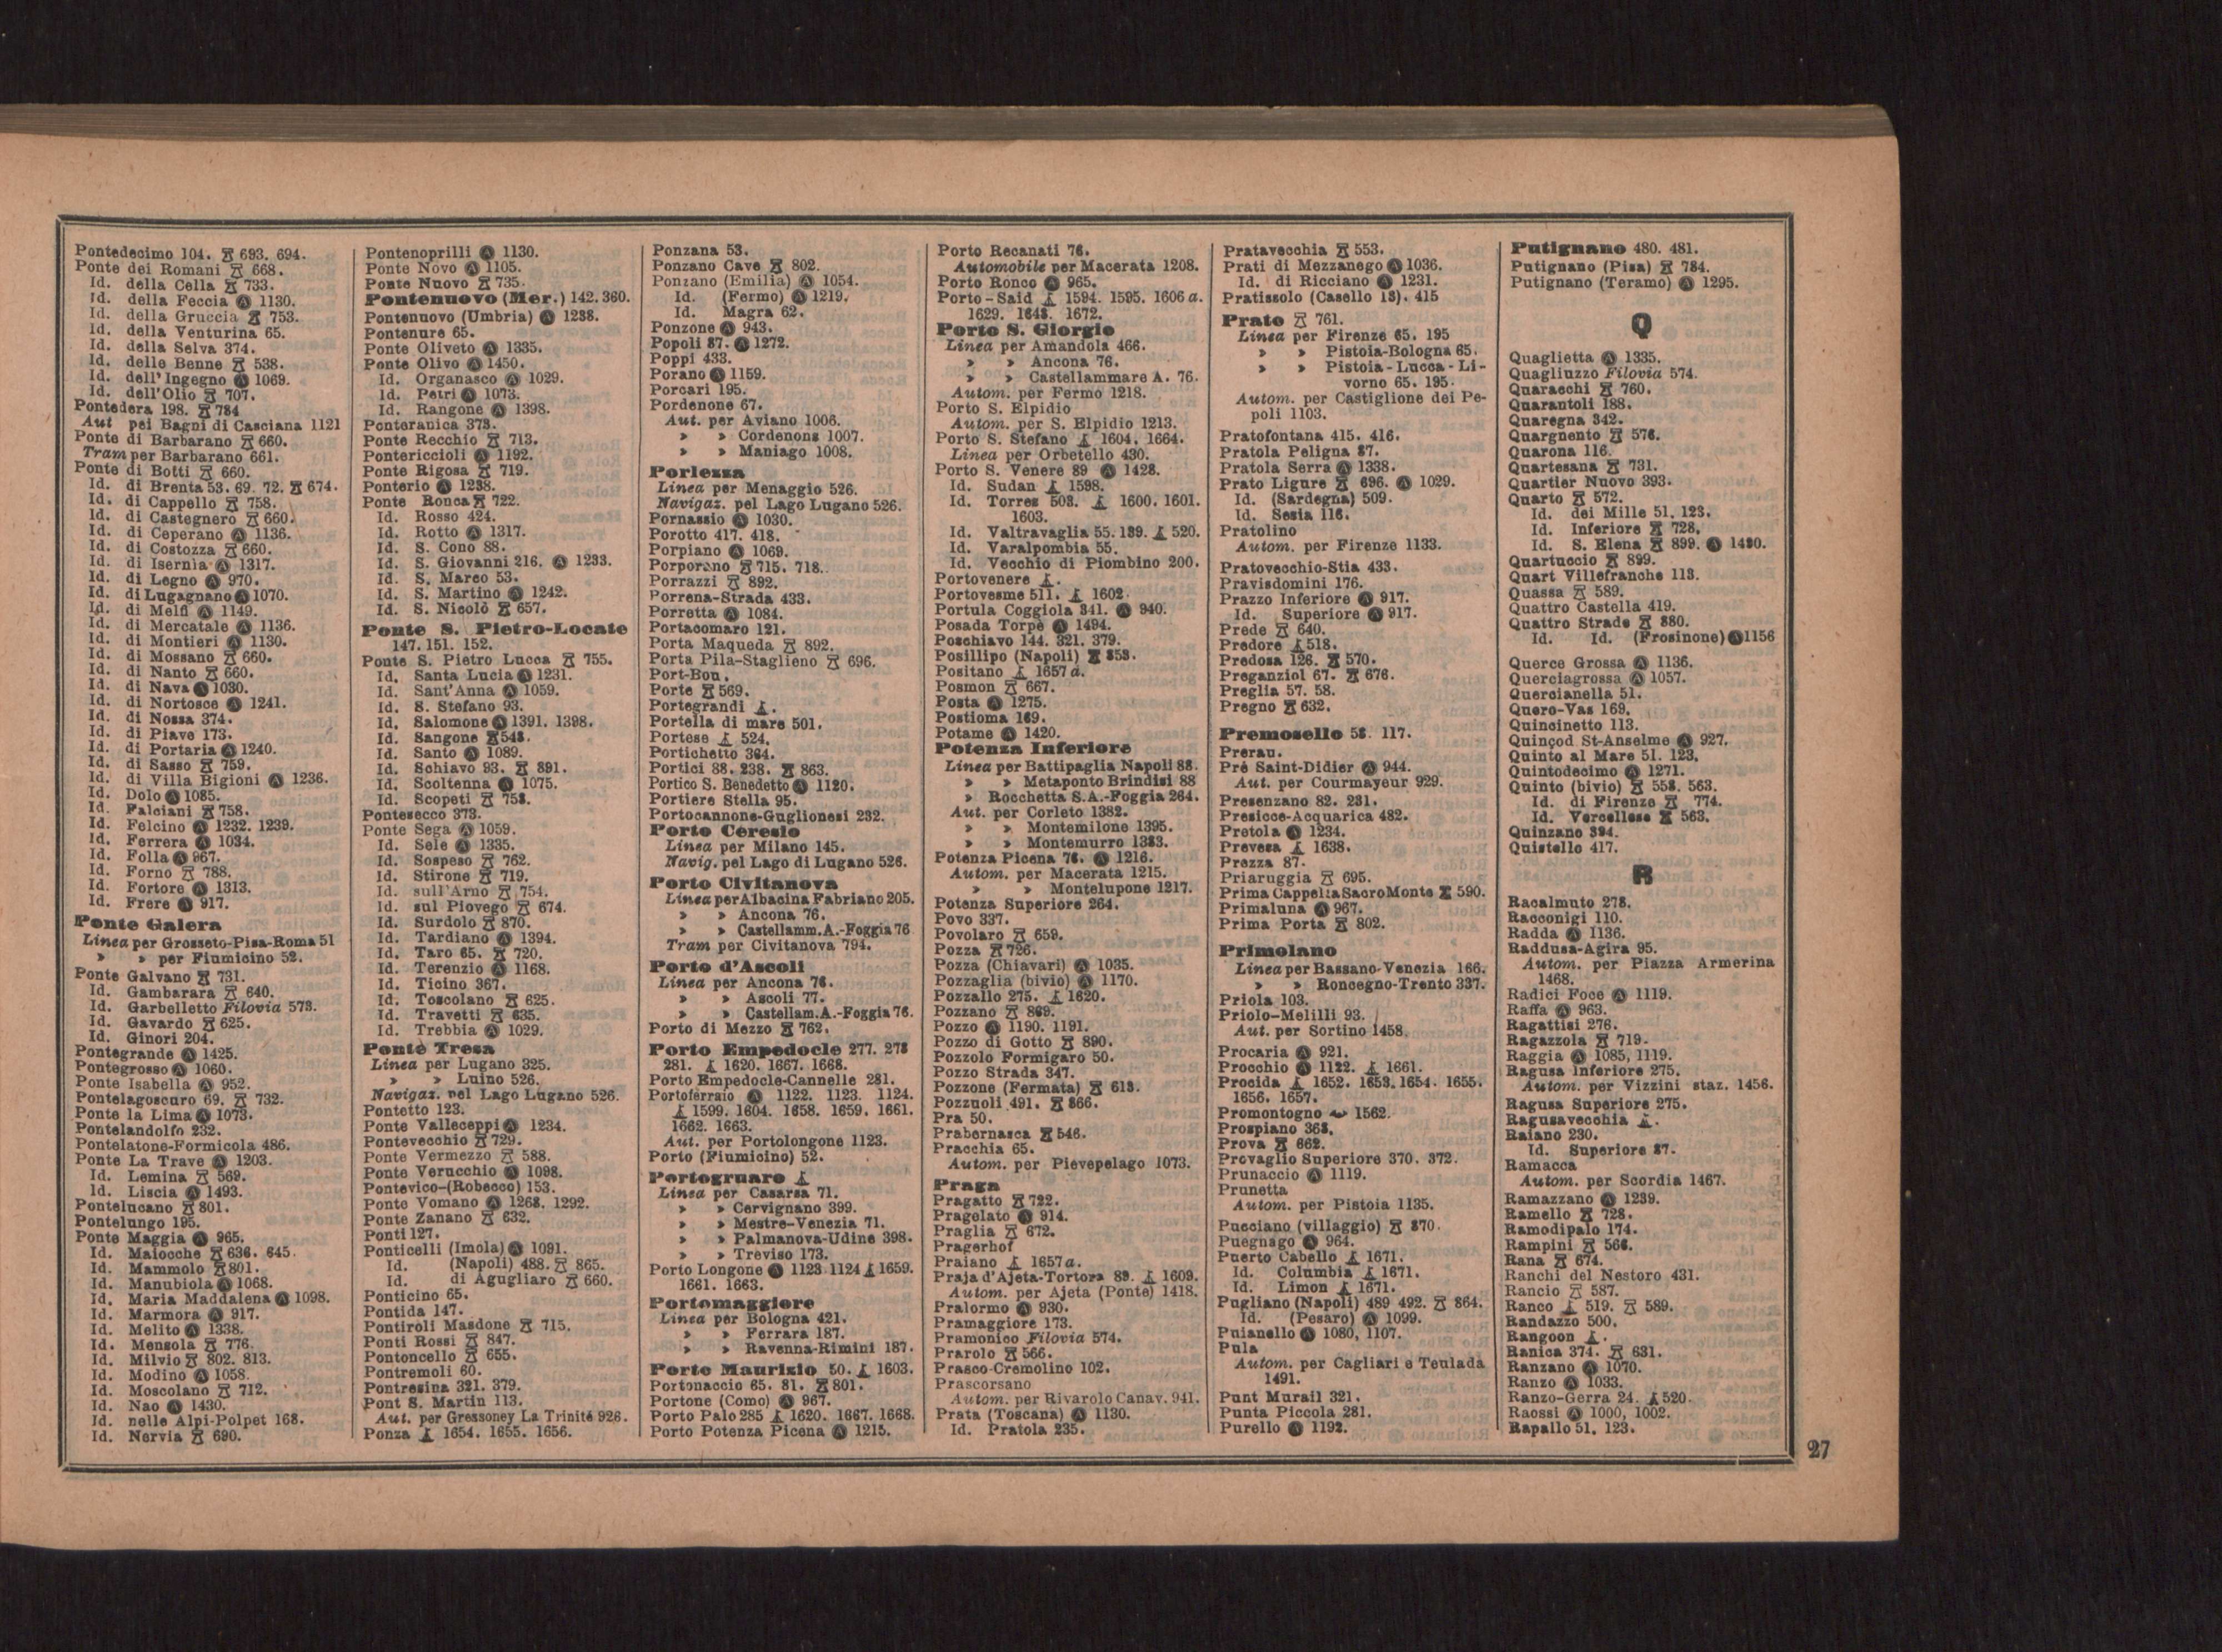 Pontedecimo 104. 693. 694.
Ponte dei Romani 668.
Id. della Cella 733.
Id. della Feccia Ⓐ 1130.
Id. della Gruccia 753.
Id. della Venturina 65.
Id. della Selva 374.
Id. delle Benne 538.
Id. dell'Ingegno Ⓐ 1069.
Id. dell'Olio 707.
Pontedera 198. 784
Aut pei Bagni di Casciana 1121
Ponte di Barbarano 660.
Tram per Barbarano 661.
Ponte di Botti 660.
Id. di Brenta 53. 69. 72. 674.
Id. di Cappello 758.
Id. di Castegnero 660.
Id. di Ceperano Ⓐ 1136.
Id. di Costozza 660.
Id. di Isernia Ⓐ 1317.
Id. di Legno Ⓐ 970.
Id. di Lugagnano Ⓐ 1070.
Id. di Melfi Ⓐ 1149.
Id. di Mercatale Ⓐ 1136.
Id. di Montieri Ⓐ 1130.
Id. di Mossano 660.
Id. di Nanto 660.
Id. di Nava Ⓐ 1030.
Id. di Nortosce Ⓐ 1241.
Id. di Nossa 374.
Id. di Piave 173.
Id. di Portaria Ⓐ 1240.
Id. di Sasso 759.
Id. di Villa Bigioni Ⓐ 1236.
Id. Dolo Ⓐ 1085.
Id. Falciani 758.
Id. Felcino Ⓐ 1232. 1239.
Id. Ferrera Ⓐ 1034.
Id. Folla Ⓐ 967.
Id. Forno 788.
Id. Fortore Ⓐ 1313.
Id. Frere Ⓐ 917.
Ponte Galera
Linea per Grosseto-Pisa-Roma 51
» » per Fiumicino 52.
Ponte Galvano 731.
Id. Gambarara 640.
Id. Garbelletto Filovia 573.
Id. Gavardo 625.
Id. Ginori 204.
Pontegrande Ⓐ 1425.
Pontegrosso Ⓐ 1060.
Ponte Isabella Ⓐ 952.
Pontelagoscuro 69. 732.
Ponte la Lima Ⓐ 1073.
Pontelandolfo 232.
Pontelatone-Formicola 486.
Ponte La Trave Ⓐ 1203.
Id. Lemina 569.
Id. Liscia Ⓐ 1493.
Pontelucano 801.
Pontelungo 195.
Ponte Maggia Ⓐ 965.
Id. Maiocche 636. 645.
Id. Mammolo 801.
Id. Manubiola Ⓐ 1068.
Id. Maria Maddalena Ⓐ 1098.
Id. Marmora Ⓐ 917.
Id. Melito Ⓐ 1338.
Id. Mensola 776.
Id. Milvio 802. 813.
Id. Modino Ⓐ 1058.
Id. Moscolano 712.
Id. Nao Ⓐ 1430.
Id. nelle Alpi-Polpet 168.
Id. Nervia 690.
Pontenoprilli Ⓐ 1130.
Ponte Novo Ⓐ 1105.
Ponte Nuovo 735.
Pontenuovo (Mer.) 142. 360.
Pontenuovo (Umbria) Ⓐ 1238.
Pontenure 65.
Ponte Oliveto Ⓐ 1335.
Ponte Olivo Ⓐ 1450.
Id. Organasco Ⓐ 1029.
Id. Petri Ⓐ 1073.
Id. Rangone Ⓐ 1398.
Ponteranica 373.
Ponte Recchio 713.
Pontericcioli Ⓐ 1192.
Ponte Rigosa 719.
Ponterio Ⓐ 1238.
Ponte Ronca 722.
Id. Rosso 424.
Id. Rotto Ⓐ 1317.
Id. S. Cono 88.
Id. S. Giovanni 216. Ⓐ 1233.
Id. S. Marco 53.
Id. S. Martino Ⓐ 1242.
Id. S. Nicolò 657.
Ponte S. Pietro-Locate
147. 151. 152.
Ponte S. Pietro Lucca 755.
Id. Santa Lucia Ⓐ 1231.
Id. Sant'Anna Ⓐ 1059.
Id. S. Stefano 93.
Id. Salomone Ⓐ 1391. 1398.
Id. Sangone 548.
Id. Santo Ⓐ 1089.
Id. Schiavo 93. 891.
Id. Scoltenna Ⓐ 1075.
Id. Scopeti 758.
Pontesecco 373.
Ponte Sega Ⓐ 1059.
Id. Sele Ⓐ 1335.
Id. Sospeso 762.
Id. Stirone 719.
Id. sull'Arno 754.
Id. sul Piovego 674.
Id. Surdolo 870.
Id. Tardiano Ⓐ 1394.
Id. Taro 65. 720.
Id. Terenzio Ⓐ 1168.
Id. Ticino 367.
Id. Toscolano 625.
Id. Travetti 635.
Id. Trebbia Ⓐ 1029.
Ponte Tresa
Linea per Lugano 325.
» » Luino 526.
Navigaz. pel Lago Lugano 526.
Pontetto 123.
Ponte Valleceppi Ⓐ 1234.
Pontevecchio 729.
Ponte Vermezzo 588.
Ponte Verucchio Ⓐ 1098.
Pontevico-(Robecco) 153.
Ponte Vomano Ⓐ 1268. 1292.
Ponte Zanano 632.
Ponti 127.
Ponticelli (Imola) Ⓐ 1091.
Id. (Napoli) 488. 865.
Id. di Agugliaro 660.
Ponticino 65.
Pontida 147.
Pontiroli Masdone 715.
Ponti Rossi 847.
Pontoncello 655.
Pontremoli 60.
Pontresina 321. 379.
Pont S. Martin 113.
Aut. per Gressoney La Trinité 926.
Ponza 1654. 1655. 1656.
Ponzana 53.
Ponzano Cave 802.
Ponzano (Emilia) Ⓐ 1054.
Id. (Fermo) Ⓐ 1219.
Id. Magra 62.
Ponzone Ⓐ 943.
Popoli 87. Ⓐ 1272.
Poppi 433.
Porano Ⓐ 1159.
Porcari 195.
Pordenone 67.
Aut. per Aviano 1006.
» » Cordenons 1007.
» » Maniago 1008.
Porlezza
Linea per Menaggio 526.
Navigaz. pel Lago Lugano 526.
Pornassio Ⓐ 1030.
Porotto 417. 418.
Porpiano Ⓐ 1069.
Porporano 715. 718.
Porrazzi 892.
Porrena-Strada 433.
Porretta Ⓐ 1084.
Portacomaro 121.
Porta Maqueda 892.
Porta Pila-Staglieno 696.
Port-Bou.
Porte 569.
Portegrandi
Portella di mare 501.
Portese 524.
Portichetto 364.
Portici 88. 238. 863.
Portico S. Benedetto Ⓐ 1120.
Portiere Stella 95.
Portocannone-Guglionesi 232.
Porto Ceresio
Linea per Milano 145.
Navig. pel Lago di Lugano 526.
Porto Civitanova
Linea per Albacina Fabriano 205.
» » Ancona 76.
» » Castellamm. A.-Foggia 76
Tram per Civitanova 794.
Porto d'Ascoli
Linea per Ancona 76.
» » Ascoli 77.
» » Castellam. A.-Foggia 76.
Porto di Mezzo 762.
Porto Empedocle 277. 278
281. 1620. 1667. 1668.
Porto Empedocle-Cannelle 281.
Portoferraio Ⓐ 1122. 1123. 1124.
1599. 1604. 1658. 1659. 1661.
1662. 1663.
Aut. per Portolongone 1123.
Porto (Fiumicino) 52.
Portogruaro
Linea per Casarsa 71.
» » Cervignano 399.
» » Mestre-Venezia 71.
» » Palmanova-Udine 398.
» » Treviso 173.
Porto Longone Ⓐ 1123 1124 1659.
1661. 1663.
Portomaggiore
Linea per Bologna 421.
» » Ferrara 187.
» » Ravenna-Rimini 187.
Porto Maurizio 50. 1603.
Portonaccio 65. 81. 801.
Portone (Como) Ⓐ 967.
Porto Palo 285 1620. 1667. 1668.
Porto Potenza Picena Ⓐ 1215.
Porto Recanati 76.
Automobile per Macerata 1208.
Porto Ronco Ⓐ 965.
Porto-Said 1594. 1595. 1606 a.
1629. 1648. 1672.
Porto S. Giorgio
Linea per Amandola 466.
» » Ancona 76.
» » Castellammare A. 76.
Autom. per Fermo 1218.
Porto S. Elpidio
Autom. per S. Elpidio 1213.
Porto S. Stefano 1604. 1664.
Linea per Orbetello 430.
Porto S. Venere 89 Ⓐ 1428.
Id. Sudan 1598.
Id. Torres 508. 1600. 1601.
1603.
Id. Valtravaglia 55. 139. 520.
Id. Varalpombia 55.
Id. Vecchio di Piombino 200.
Portovenere
Portovesme 511. 1602.
Portula Coggiola 341. Ⓐ 940.
Posada Torpè Ⓐ 1494.
Poschiavo 144. 321. 379.
Posillipo (Napoli) 853.
Positano 1657 a.
Posmon 667.
Posta Ⓐ 1275.
Postioma 169.
Potame Ⓐ 1420.
Potenza Inferiore
Linea per Battipaglia Napoli 88.
» » Metaponto Brindisi 88
» Rocchetta S.A.-Foggia 264.
Aut. per Corleto 1382.
» » Montemilone 1395.
» » Montemurro 1383.
Potenza Picena 76. Ⓐ 1216.
Autom. per Macerata 1215.
» » Montelupone 1217.
Potenza Superiore 264.
Povo 337.
Povolaro 659.
Pozza 726.
Pozza (Chiavari) Ⓐ 1035.
Pozzaglia (bivio) Ⓐ 1170.
Pozzallo 275. 1620.
Pozzano 869.
Pozzo Ⓐ 1190. 1191.
Pozzo di Gotto 890.
Pozzolo Formigaro 50.
Pozzo Strada 347.
Pozzone (Fermata) 613.
Pozzuoli 491. 866.
Pra 50.
Prabernasca 546.
Pracchia 65.
Autom. per Pievepelago 1073.
Praga
Pragatto 722.
Pragelato Ⓐ 914.
Praglia 672.
Pragerhof
Praiano 1657 a.
Praja d'Ajeta-Tortora 89. 1609.
Autom. per Ajeta (Ponte) 1418.
Pralormo Ⓐ 930.
Pramaggiore 173.
Pramonico Filovia 574.
Prarolo 566.
Prasco-Cremolino 102.
Prascorsano
Autom. per Rivarolo Canav. 941.
Prata (Toscana) Ⓐ 1130.
Id. Pratola 235.
Pratavecchia 553.
Prati di Mezzanego Ⓐ 1036.
Id. di Ricciano Ⓐ 1231.
Pratissolo (Casello 13). 415
Prato 761.
Linea per Firenze 65. 195
» » Pistoia-Bologna 65.
» » Pistoia-Lucca-Li-
vorno 65. 195.
Autom. per Castiglione dei Pe-
poli 1103.
Pratofontana 415. 416.
Pratola Peligna 87.
Pratola Serra Ⓐ 1338.
Prato Ligure 696. Ⓐ 1029.
Id. (Sardegna) 509.
Id. Sesia 116.
Pratolino
Autom. per Firenze 1133.
Pratovecchio-Stia 433.
Pravisdomini 176.
Prazzo Inferiore Ⓐ 917.
Id. Superiore Ⓐ 917.
Prede 640.
Predore 518.
Predosa 126. 570.
Preganziol 67. 676.
Preglia 57. 58.
Pregno 632.
Premosello 58. 117.
Prerau.
Pré Saint-Didier Ⓐ 944.
Aut. per Courmayeur 929.
Presenzano 82. 231.
Presicce-Acquarica 482.
Pretola Ⓐ 1234.
Prevesa 1638.
Prezza 87.
Priaruggia 695.
Prima Cappella Sacro Monte 590.
Primaluna Ⓐ 967.
Prima Porta 802.
Primolano
Linea per Bassano-Venezia 166.
» » Roncegno-Trento 337.
Priola 103.
Priolo-Melilli 93.
Aut. per Sortino 1458.
Procaria Ⓐ 921.
Procchio Ⓐ 1122. 1661.
Procida 1652. 1653. 1654. 1655.
1656. 1657.
Promontogno 1562.
Prospiano 368.
Prova 662.
Provaglio Superiore 370. 372.
Prunaccio Ⓐ 1119.
Prunetta
Autom. per Pistoia 1135.
Pucciano (villaggio) 870.
Puegnago Ⓐ 964.
Puerto Cabello 1671.
Id. Columbia 1671.
Id. Limon 1671.
Pugliano (Napoli) 489 492. 864.
Id. (Pesaro) Ⓐ 1099.
Puianello Ⓐ 1080, 1107.
Pula
Autom. per Cagliari e Teulada
1491.
Punt Murail 321.
Punta Piccola 281.
Purello Ⓐ 1192.
Putignano 480. 481.
Putignano (Pisa) 784.
Putignano (Teramo) Ⓐ 1295.
Q
Quaglietta Ⓐ 1335.
Quagliuzzo Filovia 574.
Quaracchi 760.
Quarantoli 188.
Quaregna 342.
Quargnento 576.
Quarona 116.
Quartesana 731.
Quartier Nuovo 393.
Quarto 572.
Id. dei Mille 51. 123.
Id. Inferiore 728.
Id. S. Elena 899. Ⓐ 1480.
Quartuccio 899.
Quart Villefranche 113.
Quassa 589.
Quattro Castella 419.
Quattro Strade 880.
Id. Id. (Frosinone) Ⓐ 1156
Querce Grossa Ⓐ 1136.
Querciagrossa Ⓐ 1057.
Quercianella 51.
Quero-Vas 169.
Quincinetto 113.
Quinçod St-Anselme Ⓐ 927.
Quinto al Mare 51. 123.
Quintodecimo Ⓐ 1271.
Quinto (bivio) 558. 563.
Id. di Firenze 774.
Id. Vercellese 563.
Quinzano 394.
Quistello 417.
R
Racalmuto 278.
Racconigi 110.
Radda Ⓐ 1136.
Raddusa-Agira 95.
Autom. per Piazza Armerina
1468.
Radici Foce Ⓐ 1119.
Raffa Ⓐ 963.
Ragattisi 276.
Ragazzola 719.
Raggia Ⓐ 1085, 1119.
Ragusa Inferiore 275.
Autom. per Vizzini staz. 1456.
Ragusa Superiore 275.
Ragusavecchia
Raiano 230.
Id. Superiore 87.
Ramacca
Autom. per Scordia 1467.
Ramazzano Ⓐ 1239.
Ramello 728.
Ramodipalo 174.
Rampini 566.
Rana 674.
Ranchi del Nestoro 431.
Rancio 587.
Ranco 519. 589.
Randazzo 500.
Rangoon
Ranica 374. 631.
Ranzano Ⓐ 1070.
Ranzo Ⓐ 1033.
Ranzo-Gerra 24. 520.
Raossi Ⓐ 1000, 1002.
Rapallo 51. 123.
27